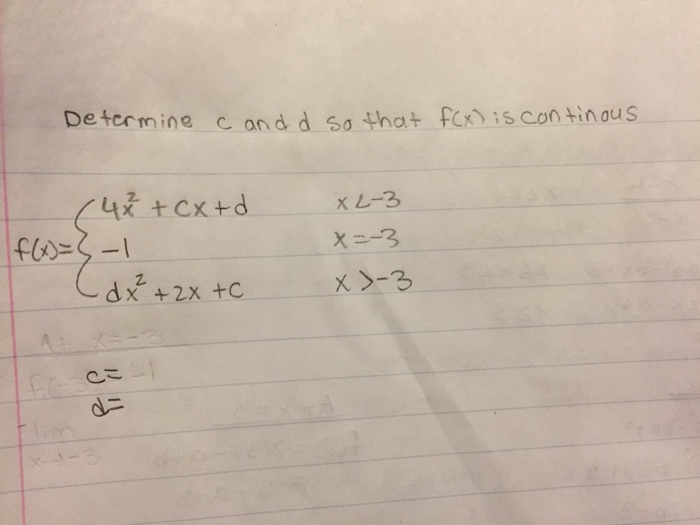 Determine c and d so that f(x) is continous
4x² + cx + d x < -3
f(x) = { -1 x = -3
dx² + 2x + c x > -3
At x = -3
c =
d =
lim
x → -3